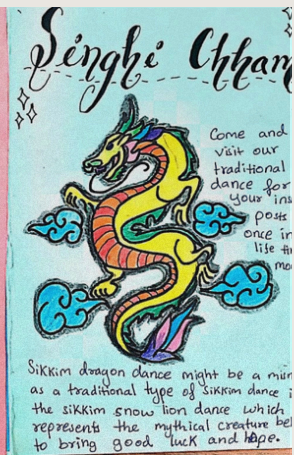 Singhi Chham
Come and
visit our
traditional
dance for
your ins
posts
once in
life
Sikkim dragon dance might be a
as a traditional type of Sikkim dance
the sikkim snow lion dance which
represents the mythical creature
to bring good luck and hope.